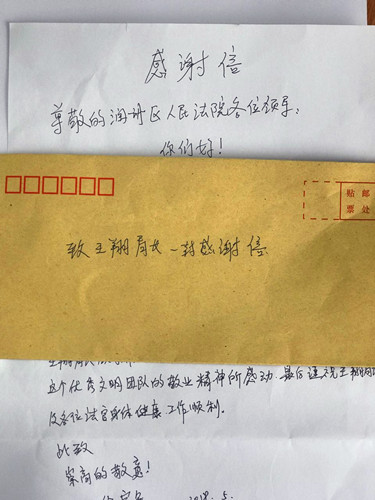 感谢信
尊敬的润州区人民法院各位领导:
你们好!
贴 邮
票 处
致王翔局长一封感谢信
这个优秀文明团队的敬业精神所感动.最后谨祝王翔
及各位法官身体健康.工作顺利.
此致
崇高的敬意!